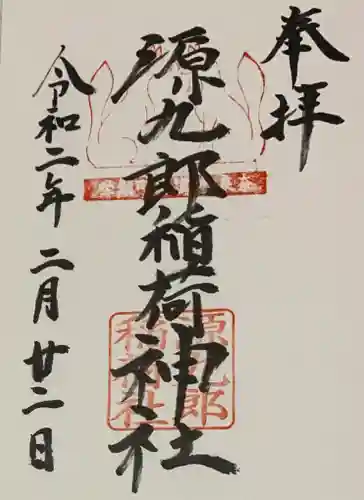 奉拝
源九郎稲荷神社
源九郎
稲荷社
令和二年 二月 廿二日